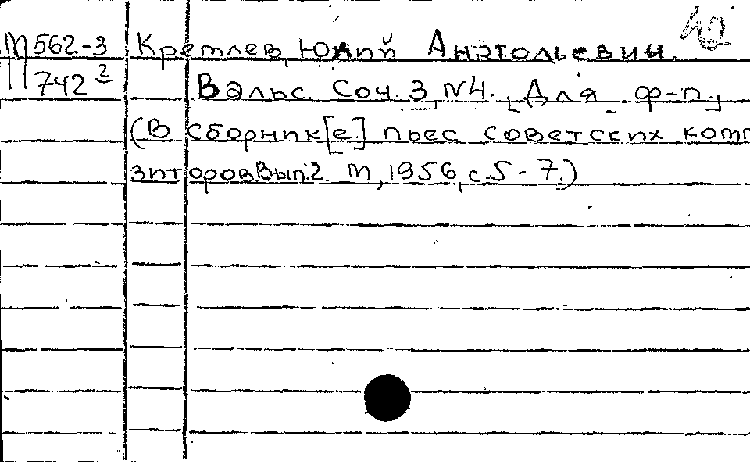 М 562-3 Кремлев, Юлий Анатольевич.
742² Вальс. Соч. 3, N4. [Для ф-п.]
(В сборник[е] пьес советских комп
зиторов. Вып. 2. М, 1956, с. 5-7.)